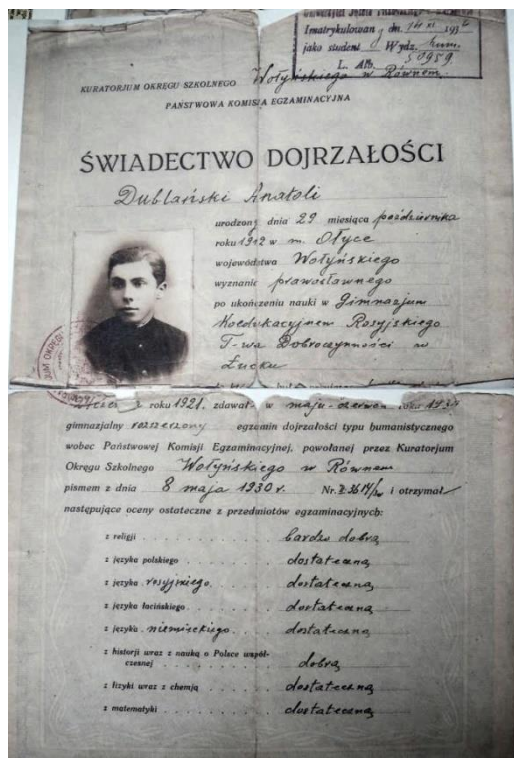 Imatrykulowany dn. 14 XI 1936
jako student Wydz. hum.
L. Alb. 50959
KURATORJUM OKRĘGU SZKOLNEGO Wołyńskiego w Równem.
PAŃSTWOWA KOMISJA EGZAMINACYJNA
ŚWIADECTWO DOJRZAŁOŚCI
Dublański Anatoli
urodzony dnia 29 miesiąca października
roku 1912 w m. Ołyce
województwa Wołyńskiego
wyznanie prawosławnego
po ukończeniu nauki w Gimnazjum
Koedukacyjnem Rosyjskiego
T-wa Dobroczynności w
Łucku
roku 1921. zdawał w maju-czerwcu roku 1930
gimnazjalny rozszerzony egzamin dojrzałości typu humanistycznego
wobec Państwowej Komisji Egzaminacyjnej, powołanej przez Kuratorjum
Okręgu Szkolnego Wołyńskiego w Równem
pismem z dnia 8 maja 1930 r. Nr. i otrzymał
następujące oceny ostateczne z przedmiotów egzaminacyjnych:
z religji . . . . . . . . bardzo dobrą
z języka polskiego . . . . . . . dostateczną
z języka rosyjskiego. . . . . . dostateczną
z języka łacińskiego . . . . . . . dostateczną
z języka niemieckiego. . . . . dostateczną
z historji wraz z nauką o Polsce współ-
czesnej . . . . . . . . dobrą
z fizyki wraz z chemją . . . . . . dostateczną
z matematyki . . . . . . . . dostateczną